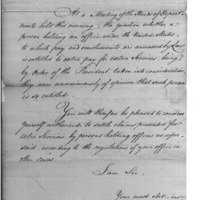 At a Meeting of the Heads of Depart-
ments held this morning, the question whether a
person holding an office under the United States
to which pay and emoluments are annexed by Law
is entitled to extra pay for extra Services, being
by Order of the President taken into consideration,
they were unanimously of opinion that such person
is not so entitled.
You will therefore be pleased to consider
yourself authorized to settle claims presented for
extra Services by persons holding offices as afore-
said, according to the regulations of your office in
other cases.
I am Sir
Your most obed.